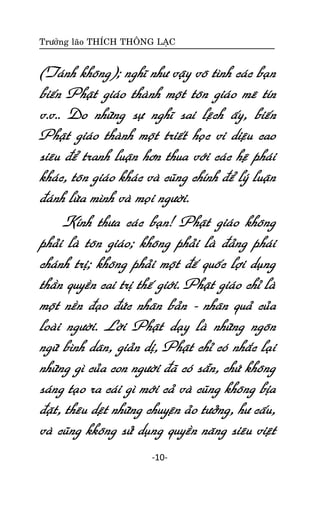 Trưởng lão THÍCH THÔNG LẠC
(Tánh không); nghĩ như vậy vô tình các bạn
biến Phật giáo thành một tôn giáo mê tín
v.v.. Do những sự nghĩ sai lệch ấy, biến
Phật giáo thành một triết học vi diệu cao
siêu để tranh luận hơn thua với các hệ phái
khác, tôn giáo khác và cũng chính để lý luận
đánh lừa mình và mọi người.
Kính thưa các bạn! Phật giáo không
phải là tôn giáo; không phải là đảng phái
chánh trị; không phải một đế quốc lợi dụng
thần quyền cai trị thế giới. Phật giáo chỉ là
một nền đạo đức nhân bản - nhân quả của
loài người. Lời Phật dạy là những ngôn
ngữ bình dân, giản dị, Phật chỉ có nhắc lại
những gì của con người đã có sẵn, chứ không
sáng tạo ra cái gì mới cả và cũng không bịa
đặt, thêu dệt những chuyện ảo tưởng, hư cấu,
và cũng kkông sử dụng quyền năng siêu việt
-10-